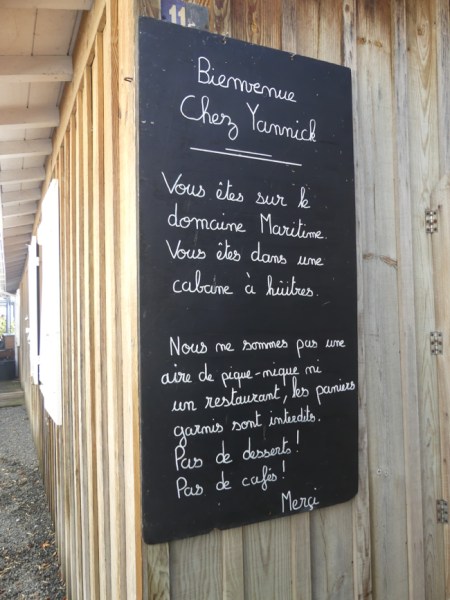 11
Bienvenue
Chez Yannick
Vous êtes sur le
domaine Maritime.
Vous êtes dans une
cabane à huîtres.
Nous ne sommes pas une
aire de pique-nique ni
un restaurant, les paniers
garnis sont interdits.
Pas de desserts!
Pas de cafés!
Merçi